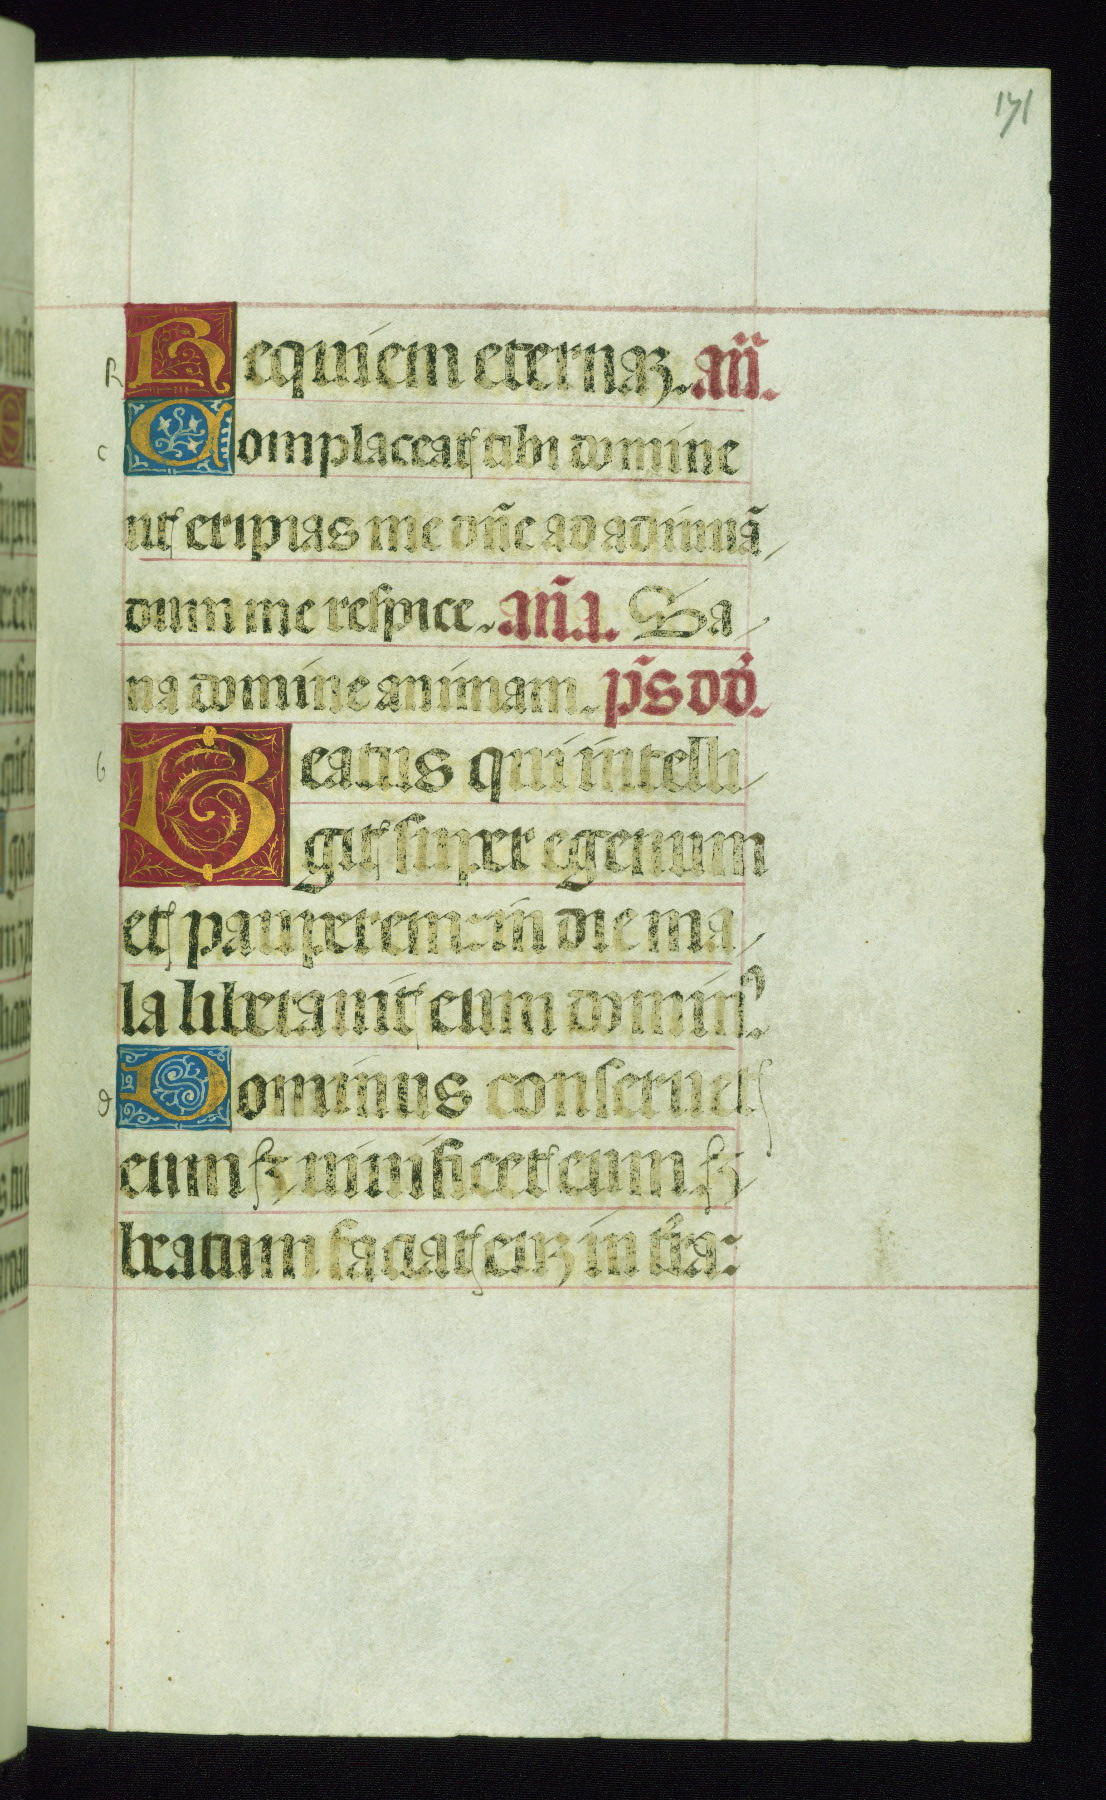 171
R
Requiem eternaȝ. añ.
c
Complaceat tibi domine
ut eripias me dñe ad adiuuã
dum me respice. Añ.a. Sa
na domine animam. p̃s dd̃.
b
Beatus qui intelli
git super egenum
et pauperem: in die ma
la liberauit eum dominꝰ.
d
Dominus conseruet
eum ⁊ uiuificet eum ⁊
beatum faciat euȝ in t̃ra: